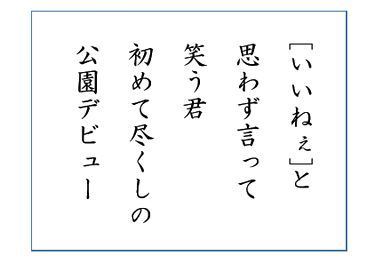 [いいねぇ]と
思わず言って
笑う君
初めて尽くしの
公園デビュー